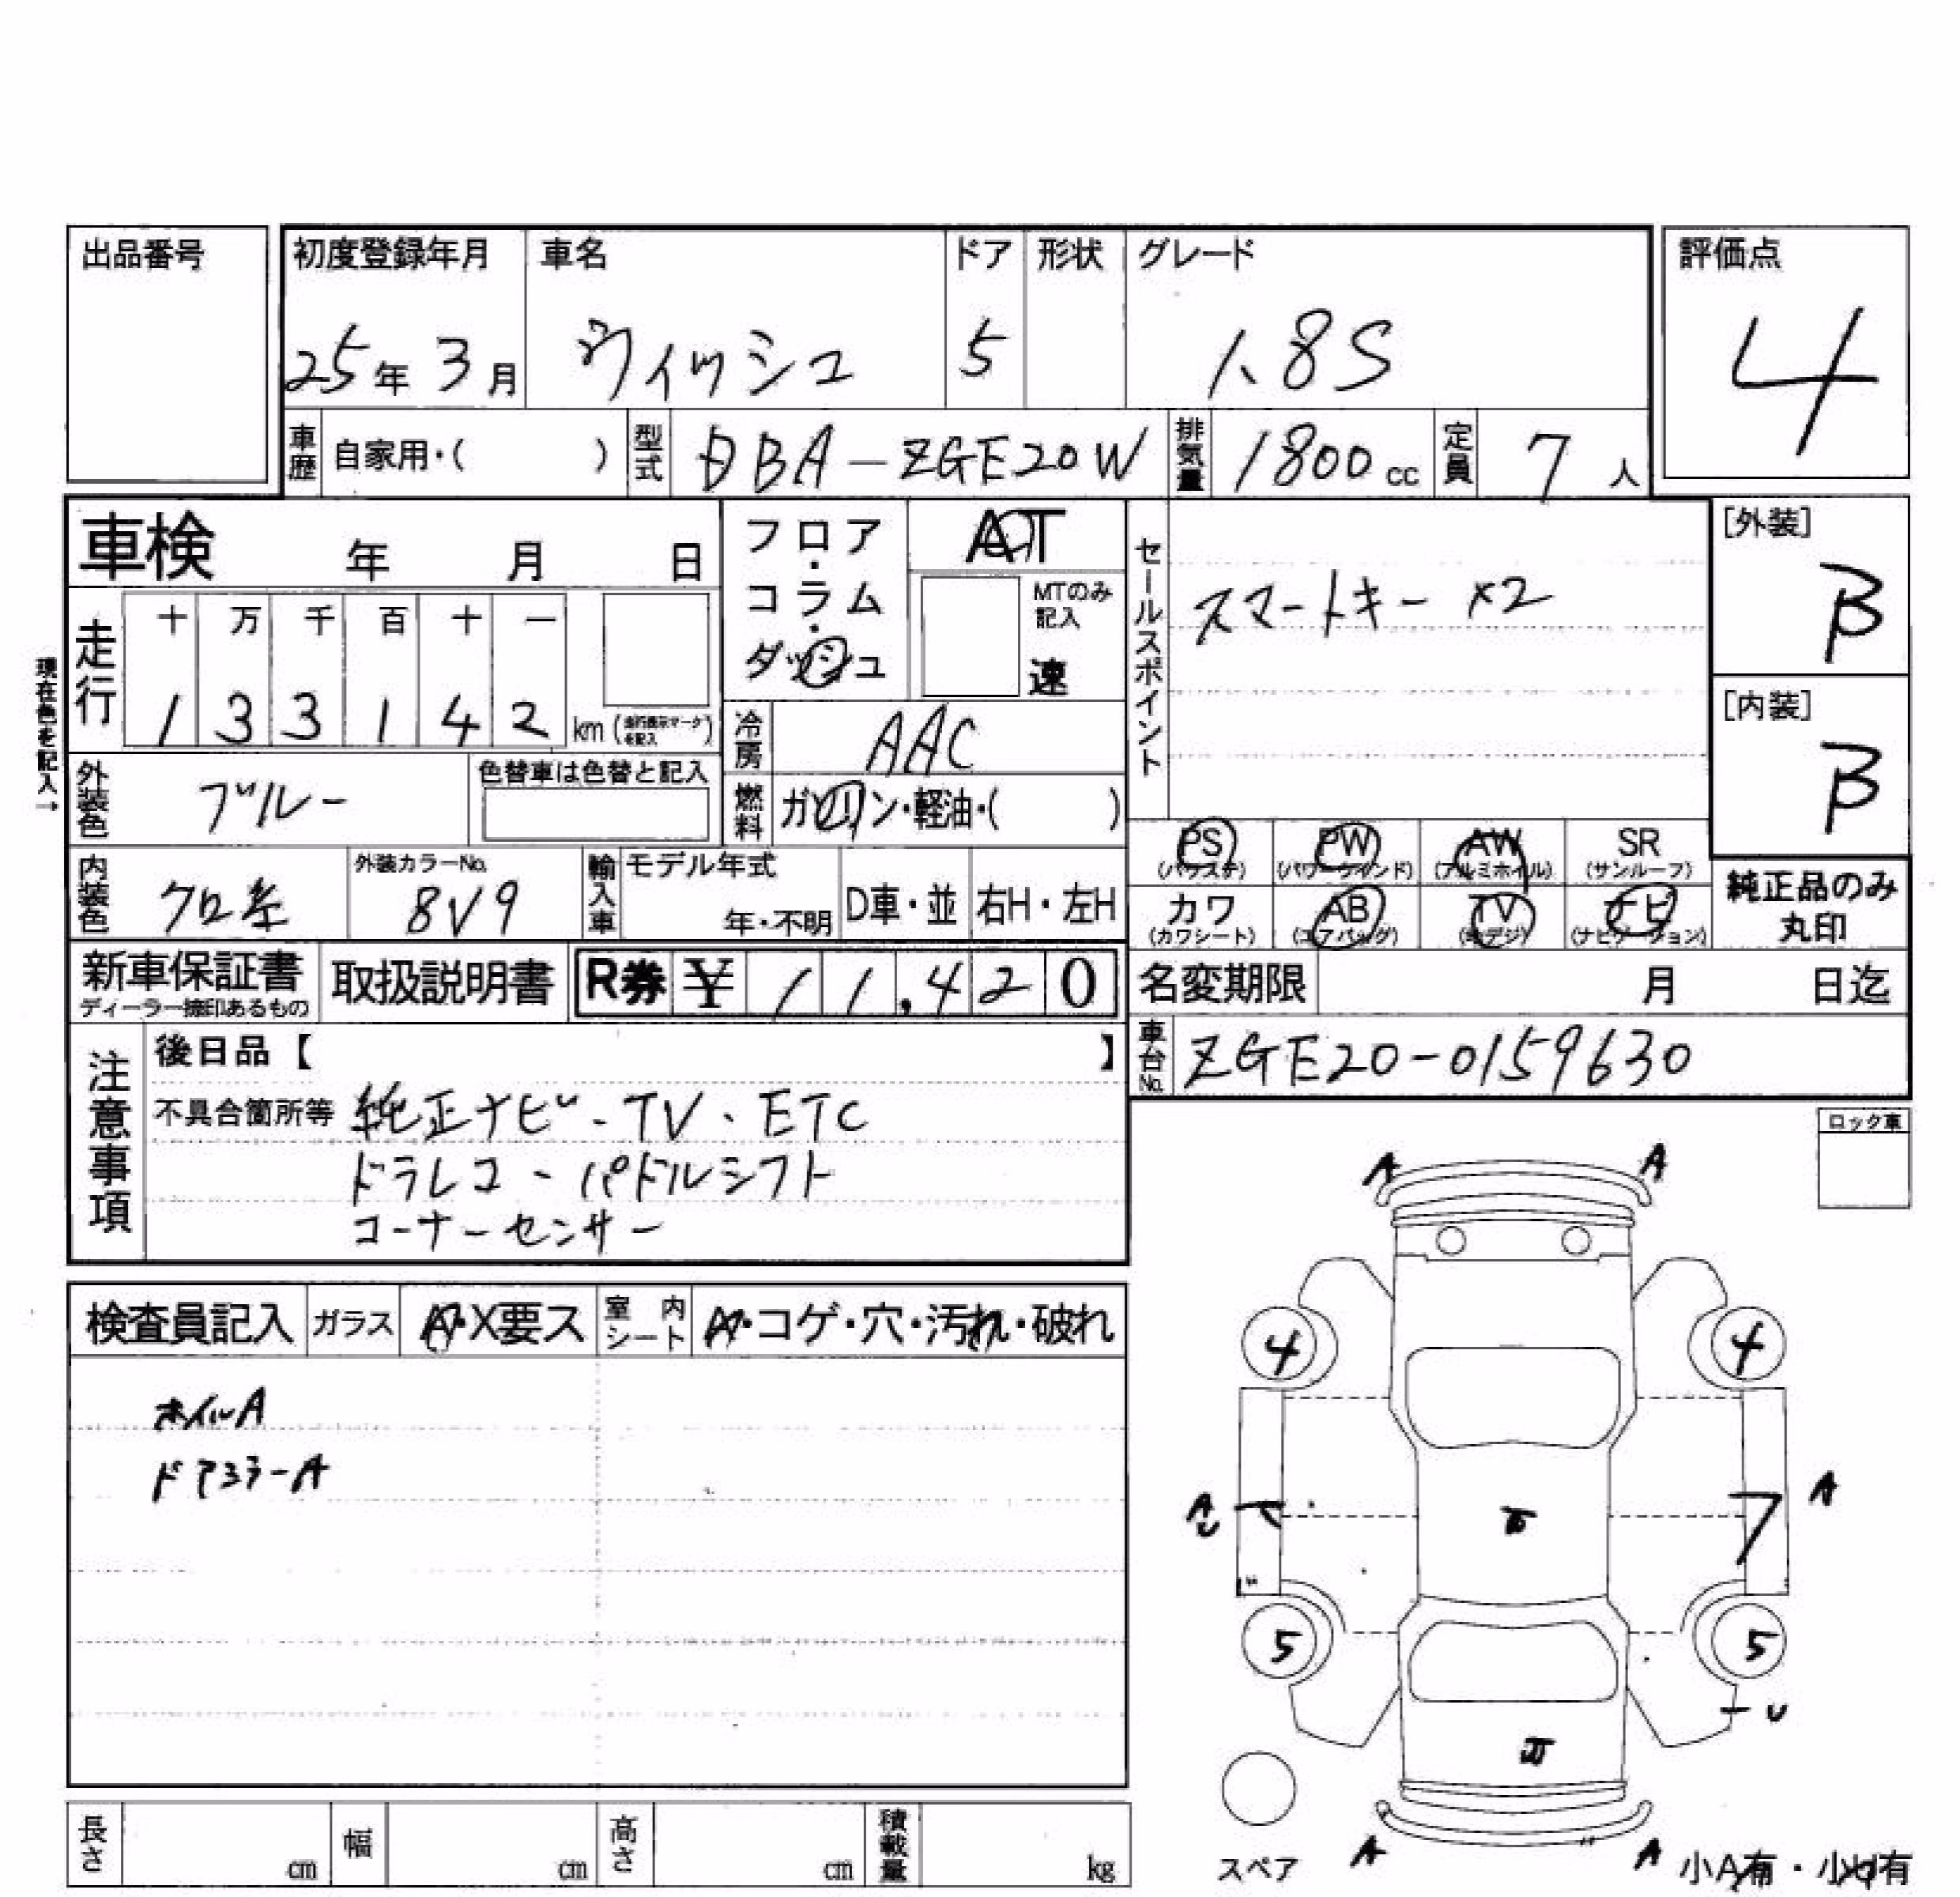 出品番号
初度登録年月 車名 ドア 形状 グレード 評価点
25年 3月 ヴィッシュ 5 1.8S 4
車歴 自家用・( ) 型式 DBA-ZGE20W 排気量 1800cc 定員 7人
車検 年 月 日
フロア・コラム・ダッシュ
AT
MTのみ記入
速
セールスポイント
スマートキー ×2
[外装]
B
[内装]
B
現在色を記入→
走行 十 万 千 百 十 一
1 3 3 1 4 2 km (走行表示マークを記入)
冷房 AAC
外装色 ブルー 色替車は色替と記入
燃料 ガソリン・軽油・( )
PS (パワステ) PW (パワーウインド) AW (アルミホイル) SR (サンルーフ)
カワ (カワシート) AB (エアバッグ) TV (地デジ) ナビ (ナビゲーション)
純正品のみ
丸印
内装色 クロ系 外装カラーNo. 8V9 輸入車 モデル年式 年・不明 D車・並 右H・左H
新車保証書 取扱説明書 R券 ¥ 11,420
ディーラー捺印あるもの
名変期限 月 日迄
車台No. ZGE20-0159630
注意事項
後日品【 】
不具合箇所等 純正ナビ・TV・ETC
ドラレコ・パドルシフト
コーナーセンサー
ロック車
A A
検査員記入 ガラス A・X要ス 室内シート A・コゲ・穴・汚れ・破れ
4 4
ホイルA
ドアミラーA
A
U
A
5 5
U
スペア
A A
小A有・小U有
長さ cm 幅 cm 高さ cm 積載量 kg